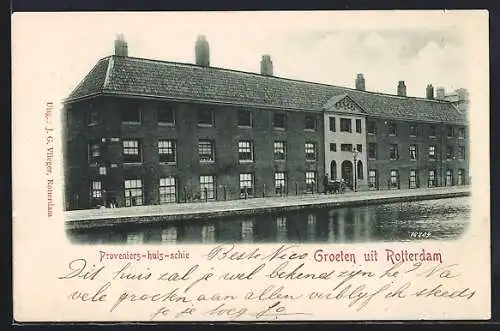 Uitg.: J. G. Vlieger, Rotterdam
16209
Proveniers-huis-schie Beste Nico Groeten uit Rotterdam
Dit huis zal je wel bekend zijn he? Na
vele groeten aan allen verblijf ik steeds
je